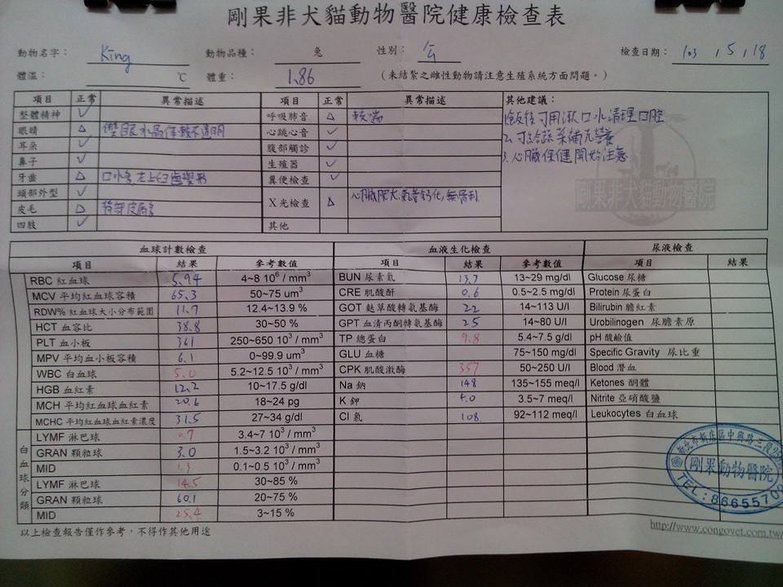 剛果非犬貓動物醫院健康檢查表
動物名字： King 動物品種： 兔 性別： 檢查日期： 103 , 5 , 18
體溫： ℃ 體重： 1.86 （未結紮之雌性動物請注意生殖系統方面問題。）
項目 正常 異常描述 項目 正常 異常描述 其他建議：
整體精神 ✓ 呼吸肺音 △ 較喘
眼睛 △ 雙眼水晶體較不透明 心跳心音 ✓
耳朵 ✓ 腹部觸診 ✓
鼻子 ✓ 生殖器 ✓
牙齒 △ 糞便檢查 ✓
頭部外型 ✓ X 光檢查 △ 心臟肥大, 氣管鈣化, 無勝利
皮毛 △
四肢 ✓ 其他
1.飯後可用漱口水清理口腔
2.可給蔬菜補充營養
3.心臟保健開始注意
剛果非犬貓動物醫院
血球計數檢查 血液生化檢查 尿液檢查
項目 結果 參考數值 項目 結果 參考數值 項目 結果
RBC 紅血球 5.94 4~8 10⁶ / mm³ BUN 尿素氮 13.7 13~29 mg/dl Glucose 尿糖
MCV 平均紅血球容積 65.3 50~75 um³ CRE 肌酸酐 0.6 0.5~2.5 mg/dl Protein 尿蛋白
RDW% 紅血球大小分布範圍 11.7 12.4~13.9 % GOT 麩草酸轉氨基酶 22 14~113 U/l Bilirubin 膽紅素
HCT 血容比 38.8 30~50 % GPT 血清丙酮轉氨基酶 25 14~80 U/l Urobilinogen 尿膽素原
PLT 血小板 361 250~650 10³ / mm³ TP 總蛋白 9.8 5.4~7.5 g/dl pH 酸鹼值
MPV 平均血小板容積 6.1 0~99.9 um³ GLU 血糖 75~150 mg/dl Specific Gravity 尿比重
WBC 白血球 5.0 5.2~12.5 10³ / mm³ CPK 肌酸激酶 357 50~250 U/l Blood 潛血
HGB 血紅素 12.2 10~17.5 g/dl Na 鈉 148 135~155 meq/l Ketones 酮體
MCH 平均紅血球血紅素 20.6 18~24 pg K 鉀 5.0 3.5~7 meq/l Nitrite 亞硝酸鹽
MCHC 平均紅血球血紅素濃度 31.5 27~34 g/dl Cl 氯 108 92~112 meq/l Leukocytes 白血球
白血球分類
LYMF 淋巴球 0.7 3.4~7 10³ / mm³
GRAN 顆粒球 3.0 1.5~3.2 10³ / mm³
MID 1.3 0.1~0.5 10³ / mm³
LYMF 淋巴球 14.5 30~85 %
GRAN 顆粒球 60.1 20~75 %
MID 25.4 3~15 %
剛果動物醫院
TEL: 8665570
以上檢查報告僅作參考，不得作其他用途
http://www.congovet.com.tw/